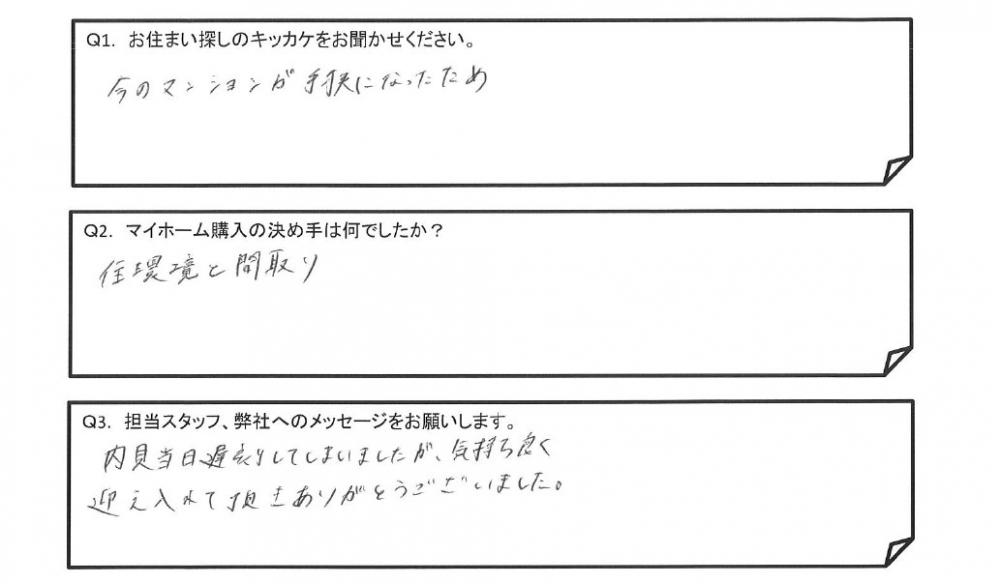 Q1. お住まい探しのキッカケをお聞かせください。
今のマンションが手狭になったため
Q2. マイホーム購入の決め手は何でしたか？
住環境と間取り
Q3. 担当スタッフ、弊社へのメッセージをお願いします。
内見当日遅刻してしまいましたが、気持ち良く
迎え入れて頂きありがとうございました。